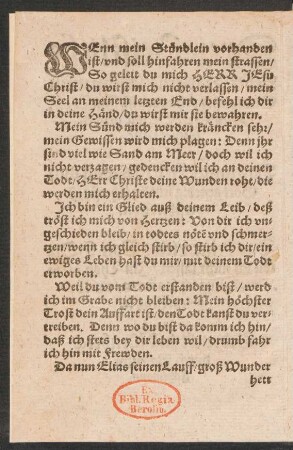 WEnn mein Stündlein vorhanden
ist/vnd soll hinfahren mein strassen/
So geleit du mich HERR JEsu
Christ/du wirst mich nicht verlassen/mein
Seel an meinem letzten End/befehl ich dir
in deine Händ/du wirst mir sie bewahren.
Mein Sünd mich werden kräncken sehr/
mein Gewissen wird mich plagen: Denn jhr
sind viel wie Sand am Meer/doch wil ich
nicht verzagen/gedencken wil ich an deinen
Todt/HErr Christe deine Wunden roht/die
werden mich erhalten.
Ich bin ein Glied auß deinem Leib/deß
tröst ich mich von Hertzen: Von dir ich vn-
geschieden bleib/in todtes nöte vnd schmer-
tzen/wenn ich gleich stirb/so stirb ich dir/ein
ewiges Leben hast du mir/mit deinem Todt
erworben.
Weil du vom Todt erstanden bist/werd
ich im Grabe nicht bleiben: Mein höchster
Trost dein Auffart ist/den Todt kanst du ver-
treiben. Denn wo du bist da komm ich hin/
daß ich stets bey dir leben wil/drumb fahr
ich hin mit Frewden.
Da nun Elias seinen Lauff/groß Wunder
hett
Ex
Bibl. Regia
Berolin.